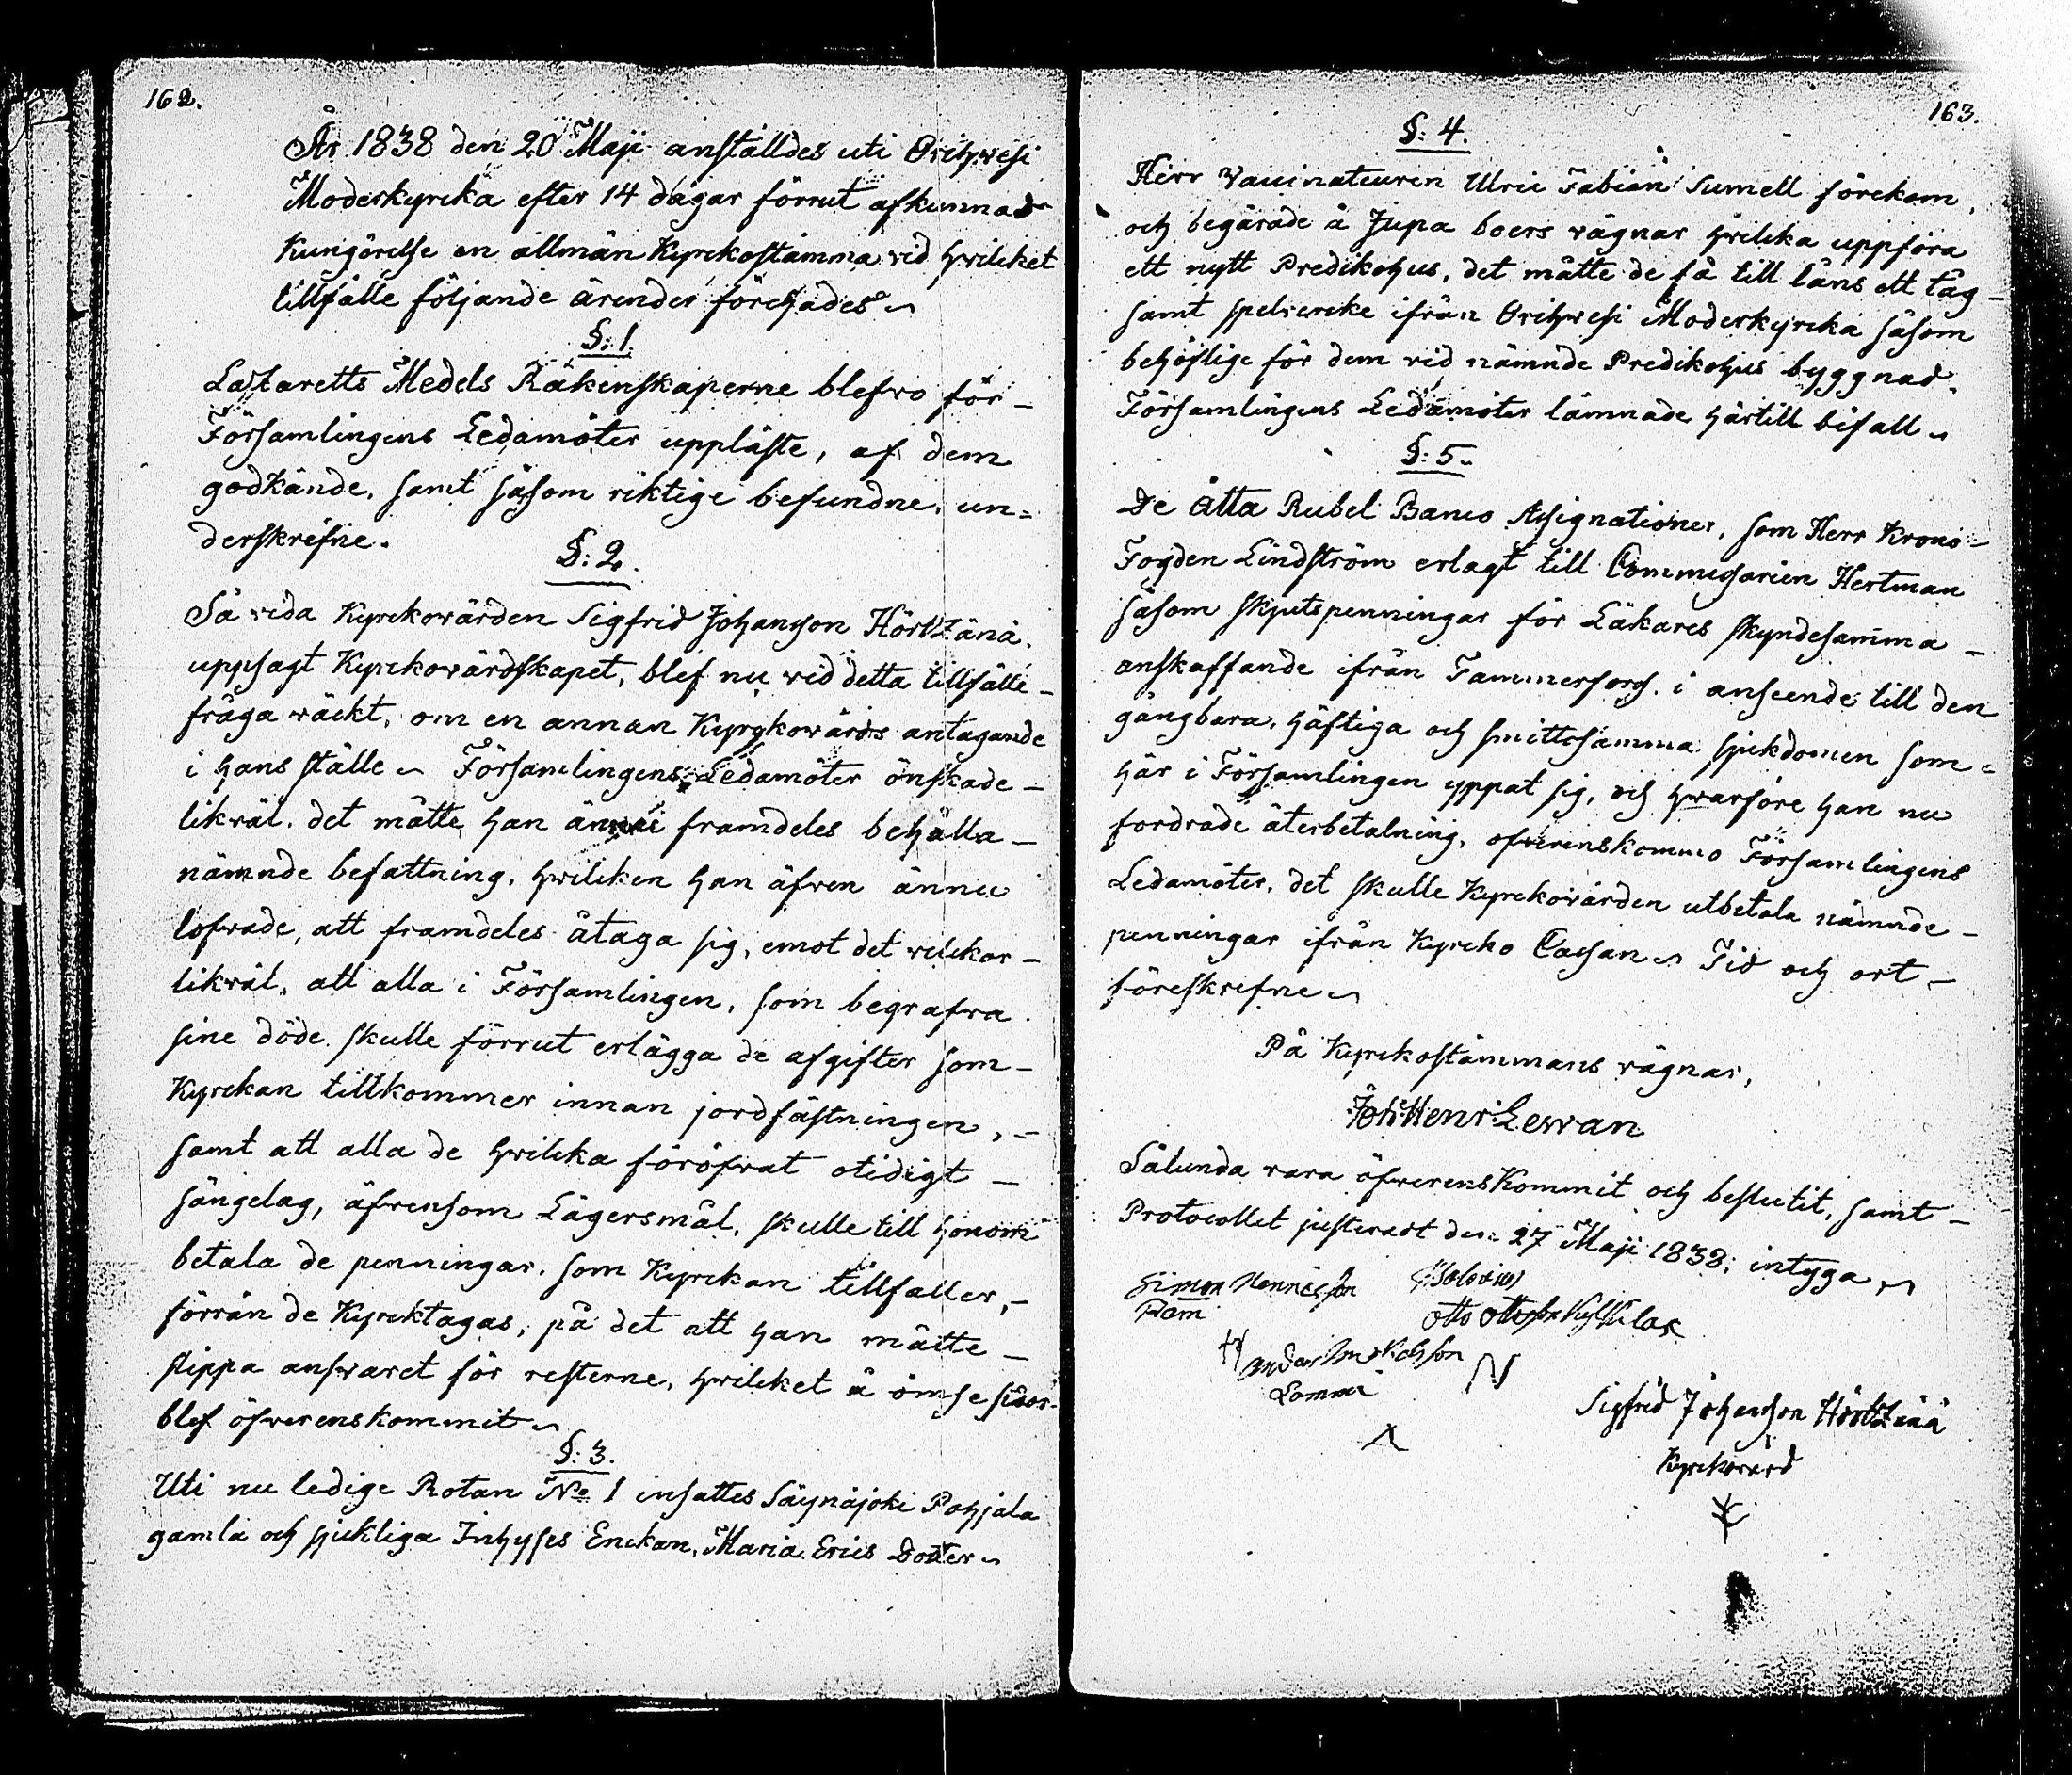 162.
År 1838 den 20 Maji anställdes uti Orihwesi
Moderkyrcka efter 14 dagar förrut afkunnad
Kungörelse en allmän Kyrckostämma vid hvilcket
tillfälle följande ärender förehades
§: 1.
Lazaretts Medels Räkenskaperne blefwo för-
Församlingens Ledamöter uppläste, af dem
godkände, samt såsom riktige befundne, un=
derskrefne.
§: 2.
Så vida Kyrckovärden Sigfrid Johansson Hörtzänä,
uppsagt Kyrckovärdskapet, blef nu vid detta tillfälle-
fråga väckt, om en annan Kyrckovärds antagande
i hans ställe Församlingens Ledamöter önskade-
likväl, det måtte han ännu framdeles behålla-
nämnde befattning, hvilcken han äfven ännu
lofvade, att framdeles åtaga sig, emot det vilckor-
likväl, att alla i Församlingen, som begrafva
sine döde skulle förrut erlägga de afgifter som-
Kyrckan tillkommer innan jordfästningen,-
samt att alla de hvilcka föröfvat otidigt-
sängelag, äfvensom Lägersmål, skulle till honom
betala de penningar, som Kyrckan tillfaller,-
förrän de Kyrcktagas, på det att han måtte-
slippa ansvaret för resterne, hvilcket å ömse sidor-
blef öfverenskommit
§: 3.
Uti nu ledige Rotan No 1 insattes Säynäjoki Pohjala
gamla och sjukliga Inhyses Enckan, Maria Erics Dotter
163.
§: 4.
Herr Vaccinateuren Ulric Fabian Sumell förekom,
och begärade å Jupa boers vägnar hvilcka uppföra
ett nytt Predikohus, det måtte de få till låns ett tåg-
samt spelvercke ifrån Orihwesi Moderkyrcka såsom
behöflige för dem vid nämnde Predikohus byggnad.
Församlingens Ledamöter lämnade härtill bifall
§: 5.
De Åtta Rubel Banco Assignationer, som Herr Krono-
Fogden Lindström erlagt till Commissarien Hertman
såsom skjutspenningar för Läkares skyndesamma-
anskaffande ifrån Tammerfors, i anseende till den
gångbara, häftiga och smittosamma sjukdomen som=
här i Församlingen yppat sig, och hvarföre han nu
fordrade återbetalning, öfverenskommo Församlingens
Ledamöter, det skulle Kyrckovärden utbetala nämnde-
penningar ifrån Kyrcko Cassan Tid och ort-
föreskrefne
På Kyrckostämmans vägnar,
Joh: Henr: Lewan
Sålunda vara öfverenskommit och beslutit, samt-
Protocollet justeradt den 27 Maji 1838; intyga
Simon Hennisson
Otto
Lammi
Sigfrid Johansson Hörtzänä
Kyrckovärd